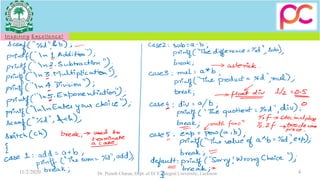 Inspiring Excellence!
scanf("%d", &b);
printf("\n 1. Addition");
printf("\n 2. Subtraction");
printf("\n 3. Multiplication");
printf("\n 4. Division");
printf("\n 5. Exponentiation");
printf("\n\n Enter your choice");
scanf("%d", &ch);
switch(ch)
{
break; → used to
terminate
a case
case 1: add = a+b;
printf("The sum = %d", add);
break;
case 2: sub = a-b;
printf("The difference = %d", sub);
break;
case 3: mul = a*b; → asterisk
printf("The product = %d", mul);
break; float div 1/2 = 0.5
case 4: div = a/b;
printf("The quotient = %d", div);
break; → math func
case 5: exp = pow(a,b);
printf("The value of a^b = %d", exp);
break;
default: printf("Sorry! Wrong Choice");
break;
11/2/2020
4